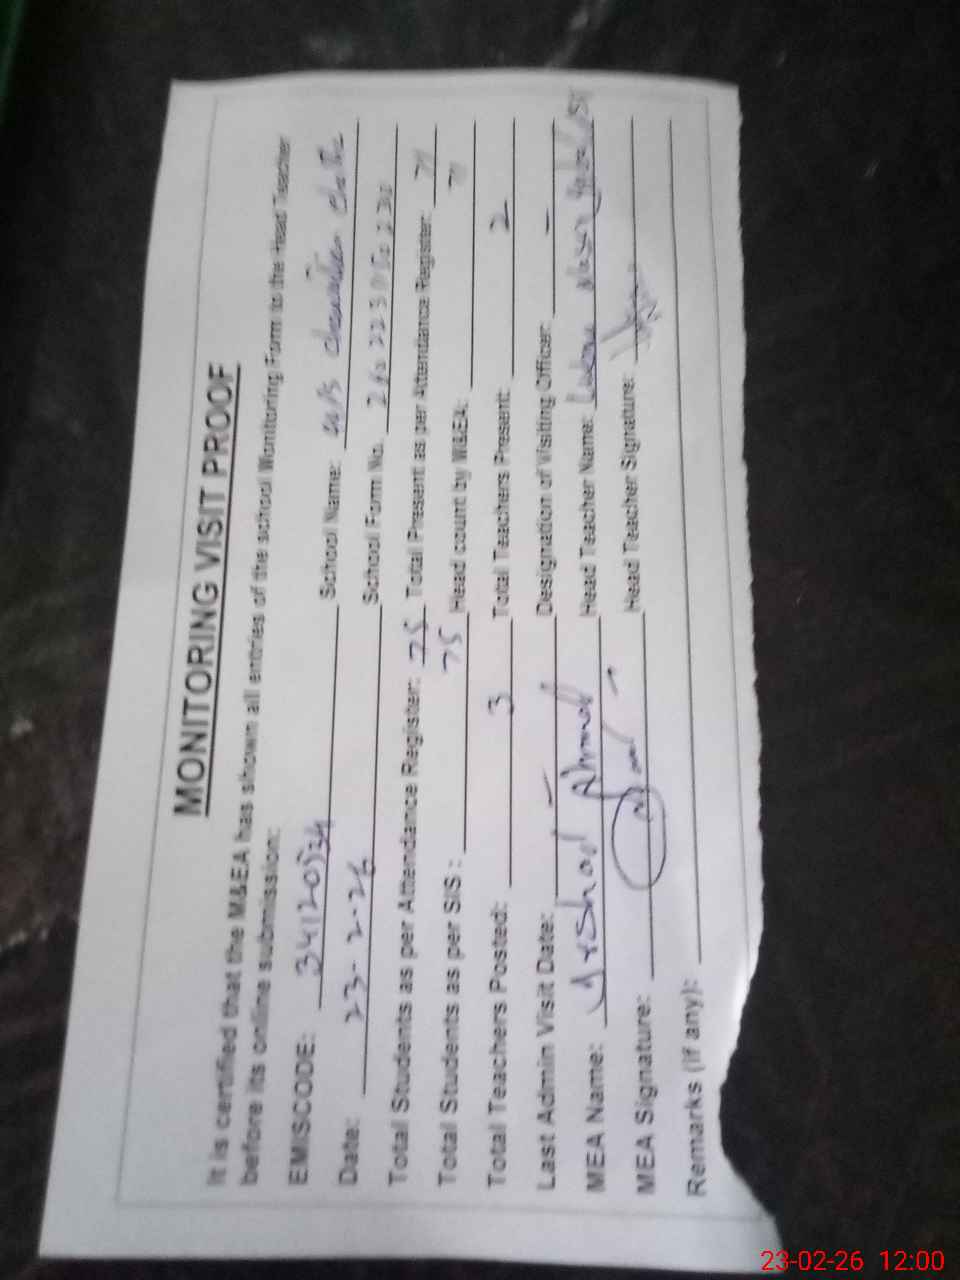 MONITORING VISIT PROOF
It is certified that the M&EA has shown all entries of the school Monitoring Form to the Head Teacher
before its online submission:
EMISCODE: 34120534 School Name:
Date: 23-2-26 School Form No.
Total Students as per Attendance Register: 75 Total Present as per Attendance Register: 71
Total Students as per SIS: 75 Head count by M&EA: 71
Total Teachers Posted: 3 Total Teachers Present: 2
Last Admin Visit Date: – Designation of Visiting Officer: –
MEA Name: Arshad Ahmad Head Teacher Name:
MEA Signature: Head Teacher Signature:
Remarks (if any):
23-02-26 12:00